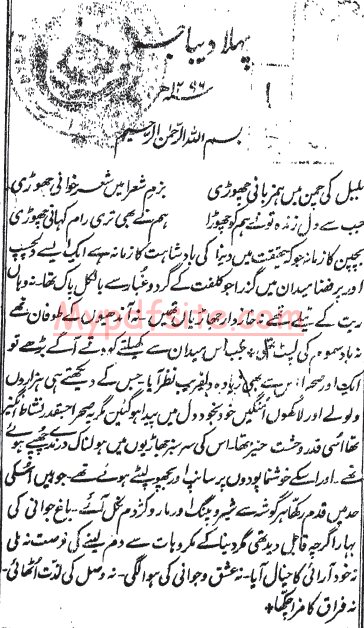 پہلا دیباچہ
۱۲۹۶ھ
بسم اللہ الرحمن الرحیم
بلبل کی چمن میں ہمزبانی چھوڑی بزم شعرا میں شعر خوانی چھوڑی
جب سے دل زندہ تو نے ہم کو چھوڑا ہم نے بھی تری رام کہانی چھوڑی
بچپن کا زمانہ جو کہ حقیقت میں دنیا کی بادشاہت کا زمانہ ہے ایک ایسے دلچسپ
اور پر فضا میدان میں گذرا جو کلفت کے گرد و غبار سے بالکل پاک تھا۔ نہ وہاں
ریت کے ٹیلے تھے نہ خاردار جھاڑیاں تھیں نہ آندھیوں کے طوفان تھے
نہ باد سموم کی لپٹ تھی۔ جب اس میدان سے کھیلتے کودتے آگے بڑھے تو
ایک اور صحرا اس سے بھی زیادہ دلفریب نظر آیا جس کے دیکھتے ہی ہزاروں
ولولے اور لاکھوں امنگیں خود بخود دل میں پیدا ہوگئیں مگر یہ صحرا جسقدر نشاط انگیز
تھا اسی قدر وحشت خیز تھا۔ اس کی سرسبز جھاڑیوں میں ہولناک درندے چھپے ہوئے
تھے۔ اور اسکے خوشنما پودوں پر سانپ اور بچھو لپٹے ہوئے تھے۔ جوہیں اسکی
حد میں قدم رکھا ہر گوشہ سے شیر و پلنگ اور مار و کژدم نکل آئے۔ باغ جوانی کی
بہار اگرچہ قابل دید تھی مگر دنیا کے مکروہات سے دم لینے کی فرصت نہ ملی
نہ خود آرائی کا خیال آیا۔ نہ عشق و جوانی کی ہوا لگی۔ نہ وصل کی لذت اٹھائی۔
نہ فراق کا مزا چکھا۔
Mypdfsite.com